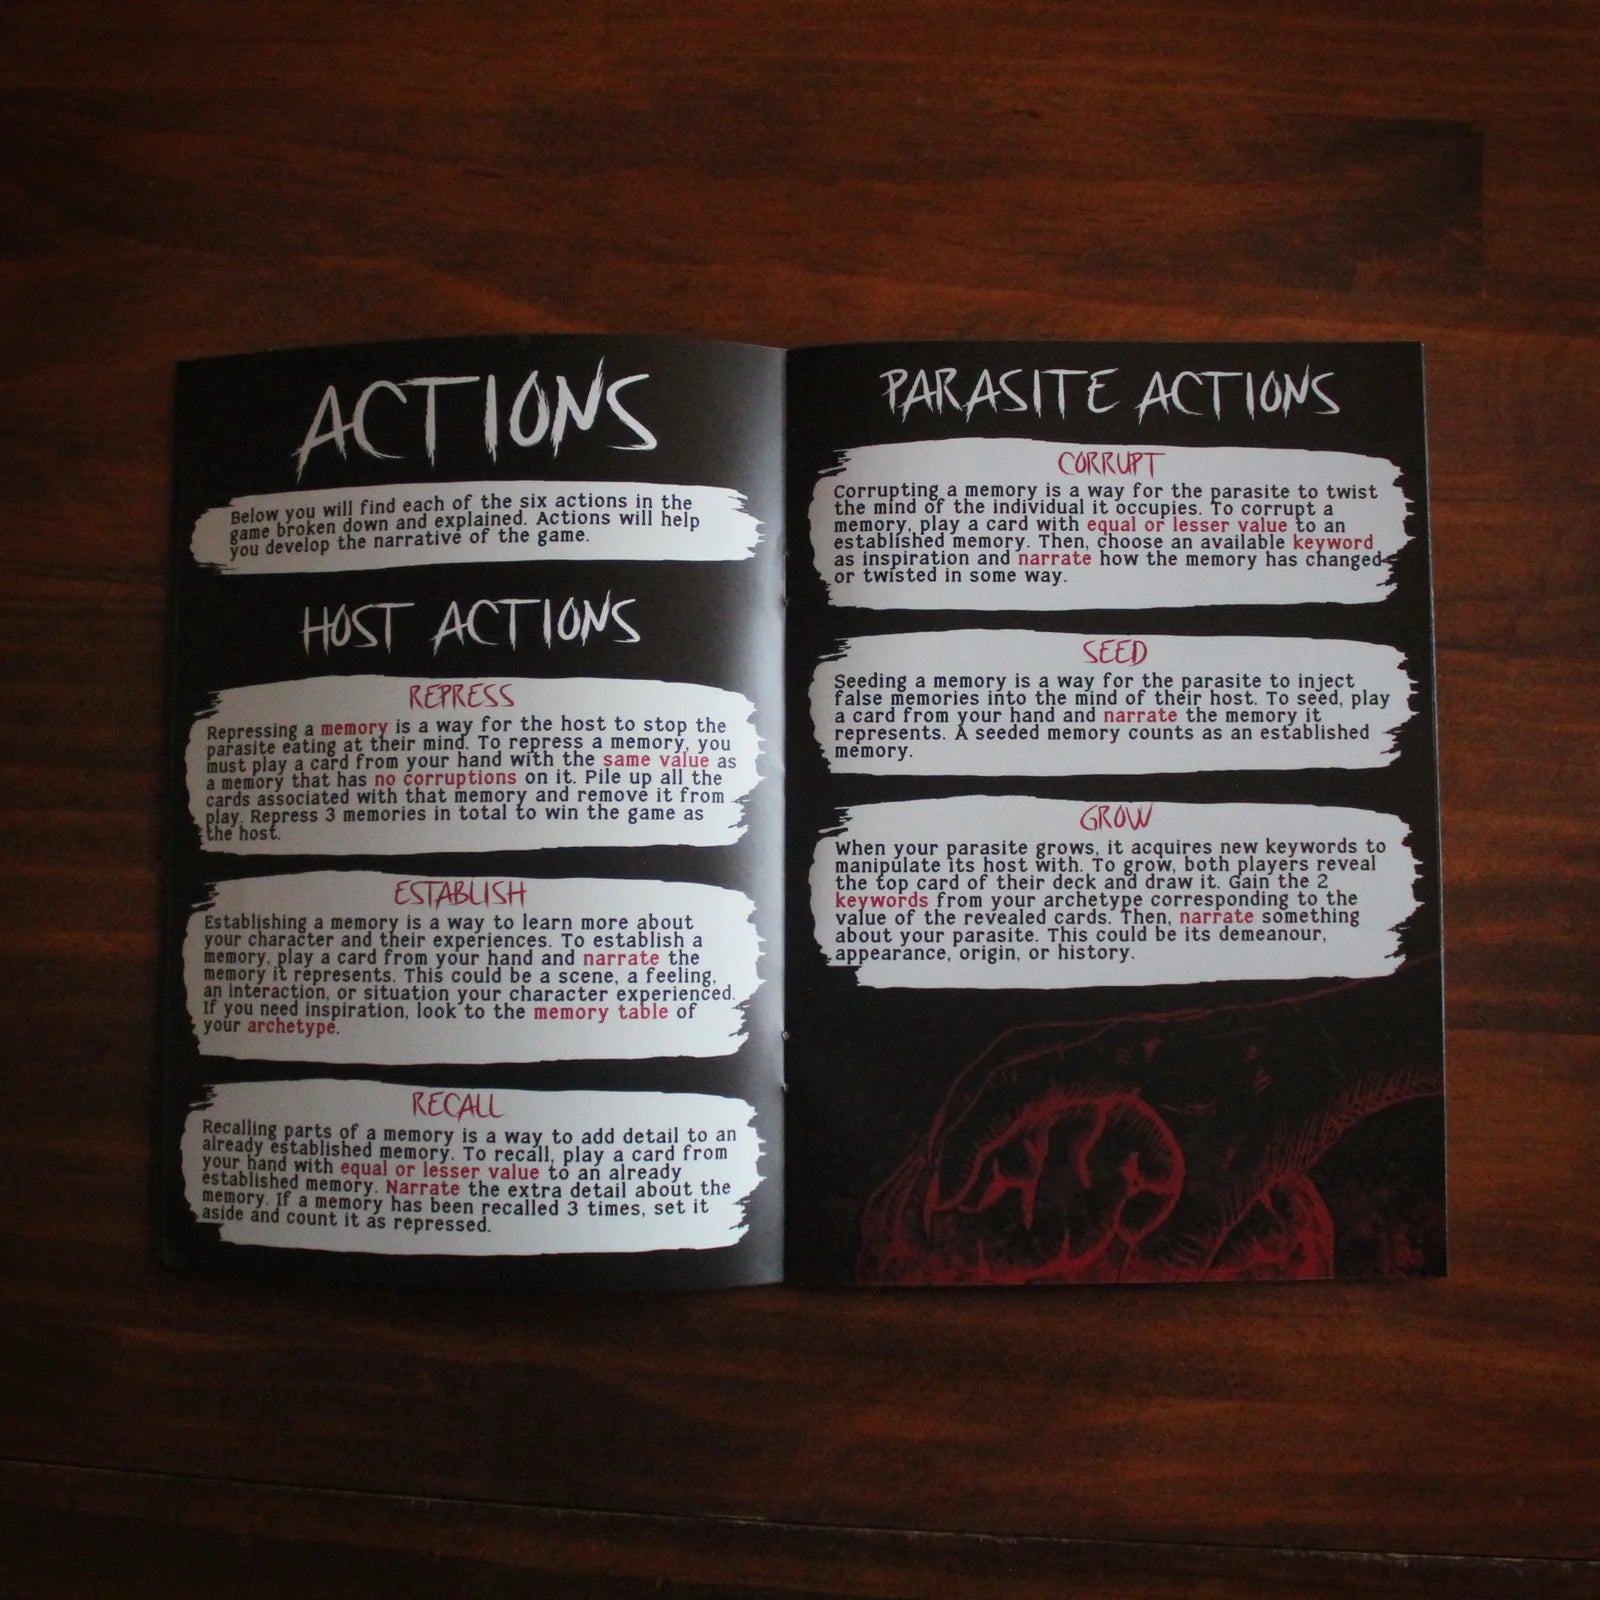 ACTIONS
Below you will find each of the six actions in the
game broken down and explained. Actions will help
you develop the narrative of the game.
HOST ACTIONS
REPRESS
Repressing a memory is a way for the host to stop the
parasite eating at their mind. To repress a memory, you
must play a card from your hand with the same value as
a memory that has no corruptions on it. Pile up all the
cards associated with that memory and remove it from
play. Repress 3 memories in total to win the game as
the host.
ESTABLISH
Establishing a memory is a way to learn more about
your character and their experiences. To establish a
memory, play a card from your hand and narrate the
memory it represents. This could be a scene, a feeling,
an interaction, or situation your character experienced.
If you need inspiration, look to the memory table of
your archetype.
RECALL
Recalling parts of a memory is a way to add detail to an
already established memory. To recall, play a card from
your hand with equal or lesser value to an already
established memory. Narrate the extra detail about the
memory. If a memory has been recalled 3 times, set it
aside and count it as repressed.
PARASITE ACTIONS
CORRUPT
Corrupting a memory is a way for the parasite to twist
the mind of the individual it occupies. To corrupt a
memory, play a card with equal or lesser value to an
established memory. Then, choose an available keyword
as inspiration and narrate how the memory has changed
or twisted in some way.
SEED
Seeding a memory is a way for the parasite to inject
false memories into the mind of their host. To seed, play
a card from your hand and narrate the memory it
represents. A seeded memory counts as an established
memory.
GROW
When your parasite grows, it acquires new keywords to
manipulate its host with. To grow, both players reveal
the top card of their deck and draw it. Gain the 2
keywords from your archetype corresponding to the
value of the revealed cards. Then, narrate something
about your parasite. This could be its demeanour,
appearance, origin, or history.